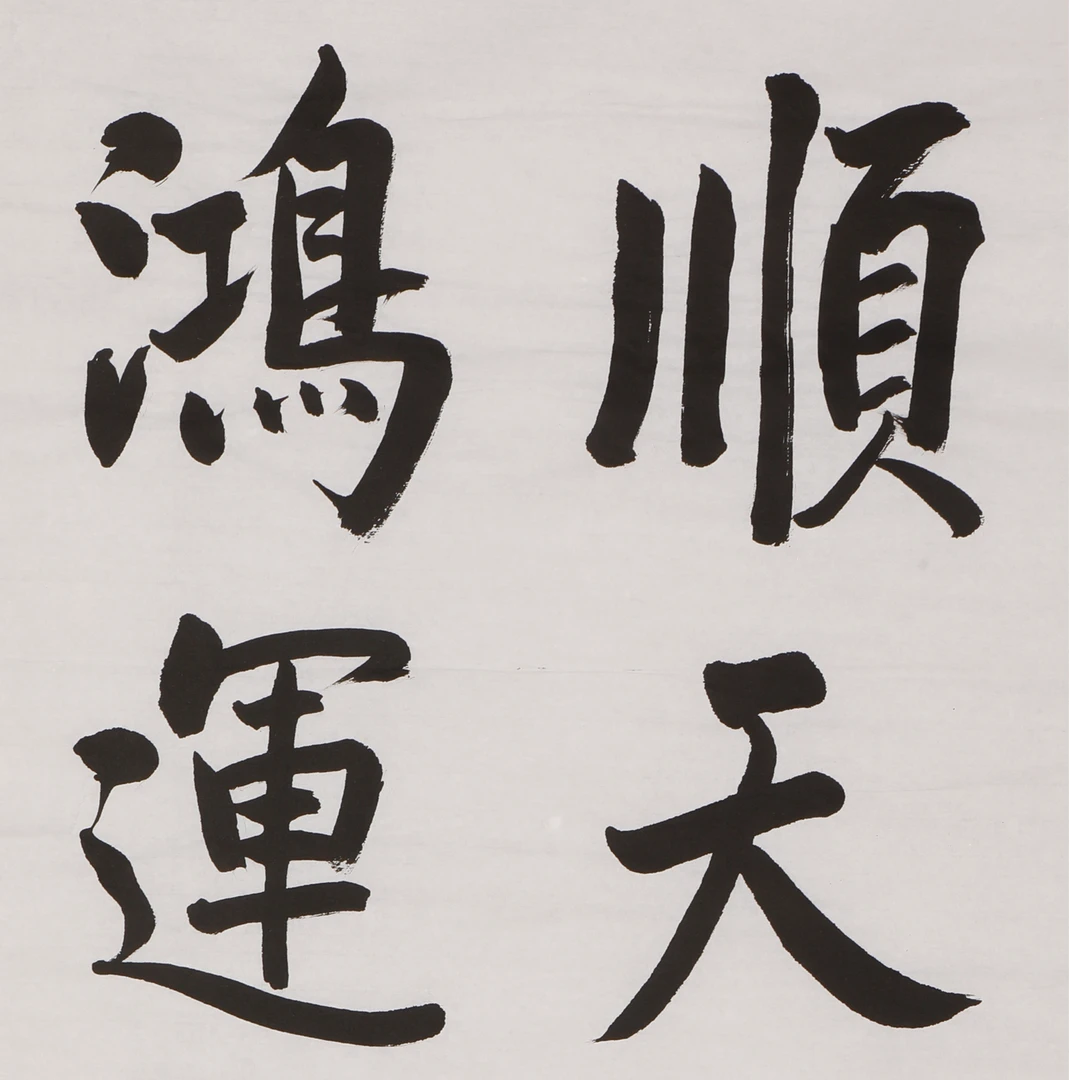 順天
鴻運